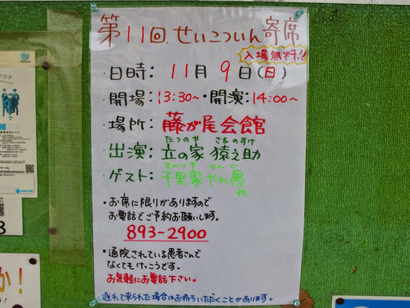 第11回.せいこついん寄席
入場無料!!
・日時: 11月9日(日)
・開場:13:30~・開演:14:00~
・場所: 藤が尾会館
たつのや さるのすけ
・出演:立の家 猿之助
せんりや
・ゲスト:千里家やん愚
他
・お席に限りがありますので
お電話でご予約お願いします。
893-2900
・通院されている患者さんで
なくてもけっこうです。
お気軽にお電話下さい。
遅れて来られた場合はお待ちいただくことがあります。
か!